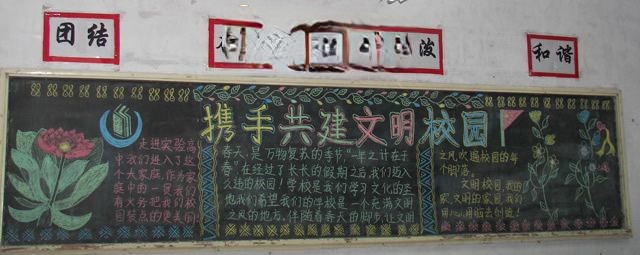 团结
泼
和谐
携手共建文明校园
走进实验高
中我们进入了这
个大家庭,作为家
庭中的一员我们
有义务把我们校
园装点的更美丽!
春天,是万物复苏的季节,"一年之计在于
春"在经过了长长的假期之后,我们迈入
久违的校园!学校是我们学习文化的圣
地,我们希望我们的学校是一个充满文明
之风的地方,伴随着春天的脚步,让文明
之风吹遍校园的每
个角落。
文明校园,我的
家,文明的家园,我们
用心,用脑去创造!